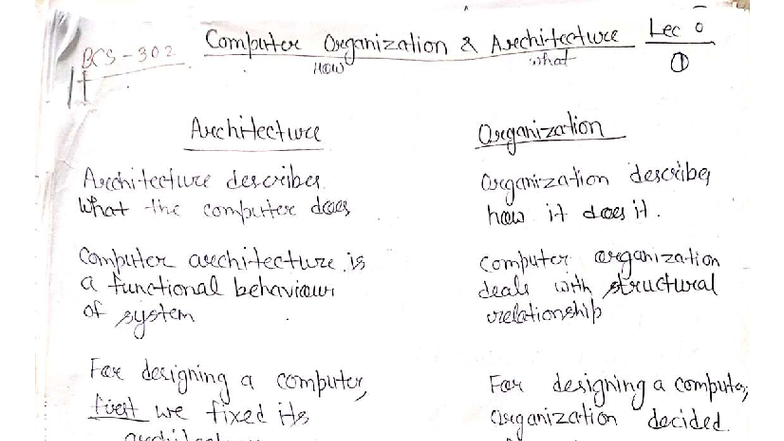 BCS-302 Computer Organization & Architecture Lec 0
How what 1
Architecture
Architecture describes
what the computer does
Computer architecture is
a functional behaviour
of system
For designing a computer,
first we fixed its
Organization
Organization describes
how it does it.
Computer organization
deals with structural
relationship
For designing a computer,
organization decided